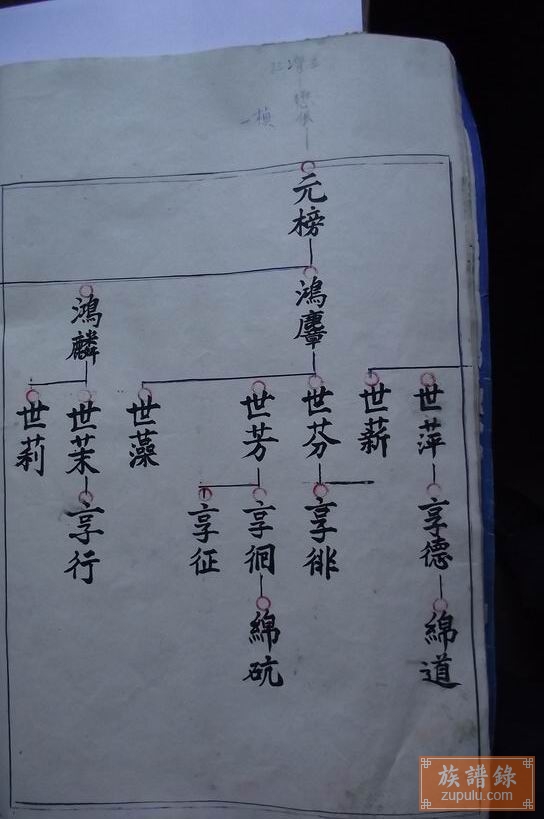 元榜
鴻麞
鴻麟
世萍
世薪
世芬
世芳
世藻
世茉
世莉
享德
享徘
享徊
享征
享行
綿道
綿砊
族譜錄
zupulu.com